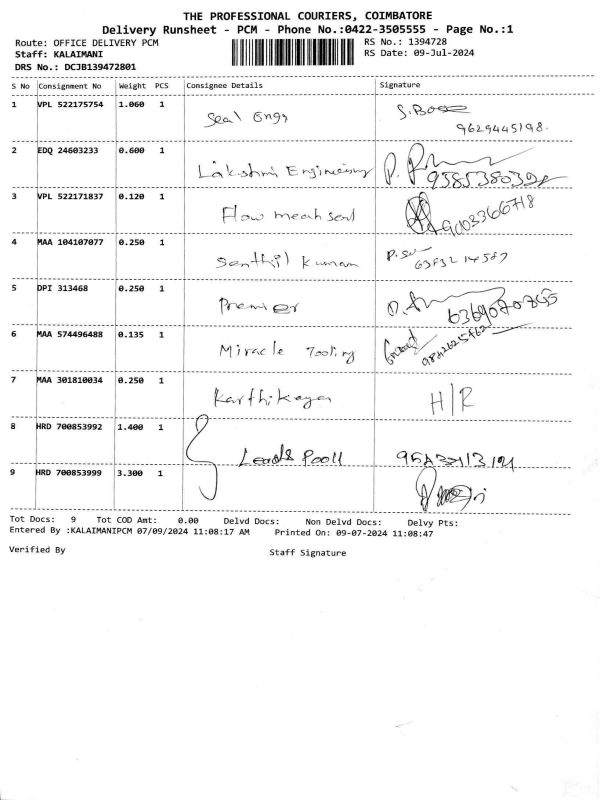 THE PROFESSIONAL COURIERS, COIMBATORE
Delivery Runsheet - PCM - Phone No.:0422-3505555 - Page No.:1
Route: OFFICE DELIVERY PCM RS No.: 1394728
Staff: KALAIMANI RS Date: 09-Jul-2024
DRS No.: DCJB139472801
S No Consignment No Weight PCS Consignee Details Signature
1 VPL 522175754 1.060 1 Seal Engs S. Bose
9629445198.
2 EDQ 24603233 0.600 1 Lakshmi Engineering
3 VPL 522171837 0.120 1 Flow 9003366718
4 MAA 104107077 0.250 1 Senthil Kumar
5 DPI 313468 0.250 1 Premier
6 MAA 574496488 0.135 1 Miracle Tooling
7 MAA 301810034 0.250 1 Karthikeyan H/R
8 HRD 700853992 1.400 1
Leads Pooll
9 HRD 700853999 3.300 1
Tot Docs: 9 Tot COD Amt: 0.00 Delvd Docs: Non Delvd Docs: Delvy Pts:
Entered By :KALAIMANIPCM 07/09/2024 11:08:17 AM Printed On: 09-07-2024 11:08:47
Verified By Staff Signature